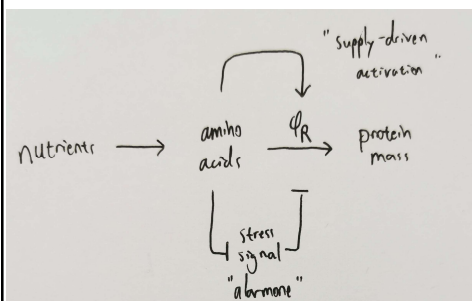 "supply-driven
activation"
nutrients
amino
acids
φR
protein
mass
stress
signal
"alarmone"